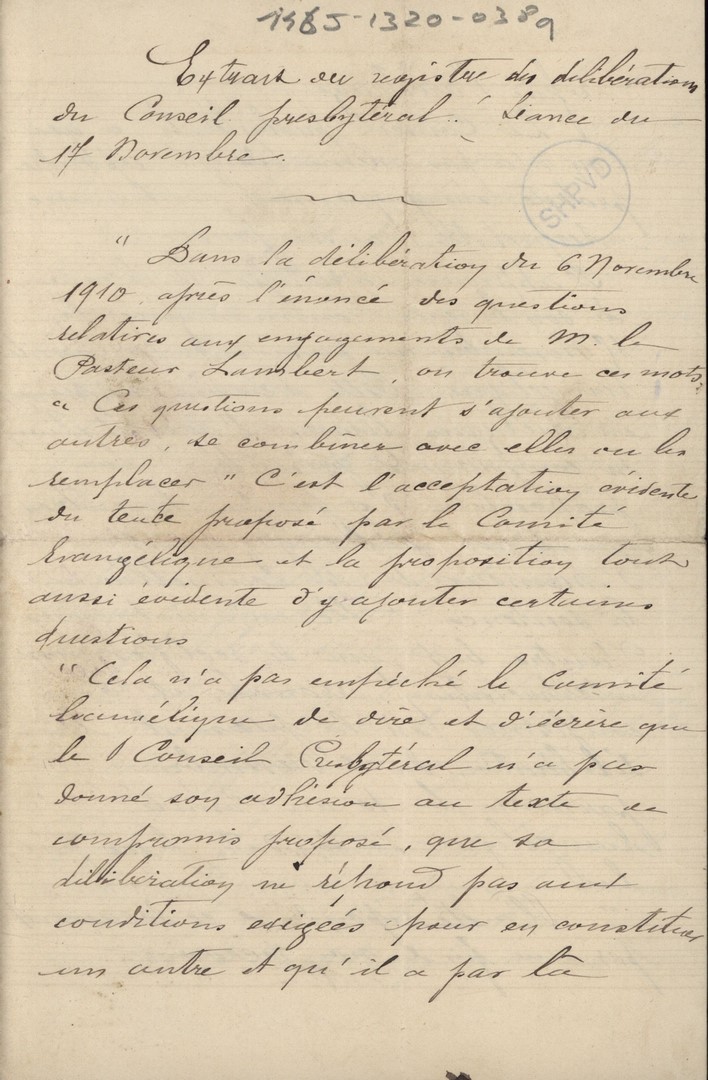 1985-1320-0389
Extrait du registre des délibérations
du Conseil presbytéral. Séance du
17 Novembre.
SHPVD
" Dans la délibération du 6 Novembre
1910, après l'énoncé des questions
relatives aux engagements de M. le
Pasteur Lambert, on trouve ces mots:
" Ces questions peuvent s'ajouter aux
autres, se combiner avec elles ou les
remplacer " C'est l'acceptation évidente
du texte proposé par le Comité
Evangélique et la proposition tout
aussi évidente d'y ajouter certaines
questions
" Cela n'a pas empêché le Comité
Evangélique de dire et d'écrire que
le Conseil Presbytéral n'a pas
donné son adhésion au texte de
compromis proposé, que sa
délibération ne répond pas aux
conditions exigées pour en constituer
un autre et qu'il a par là